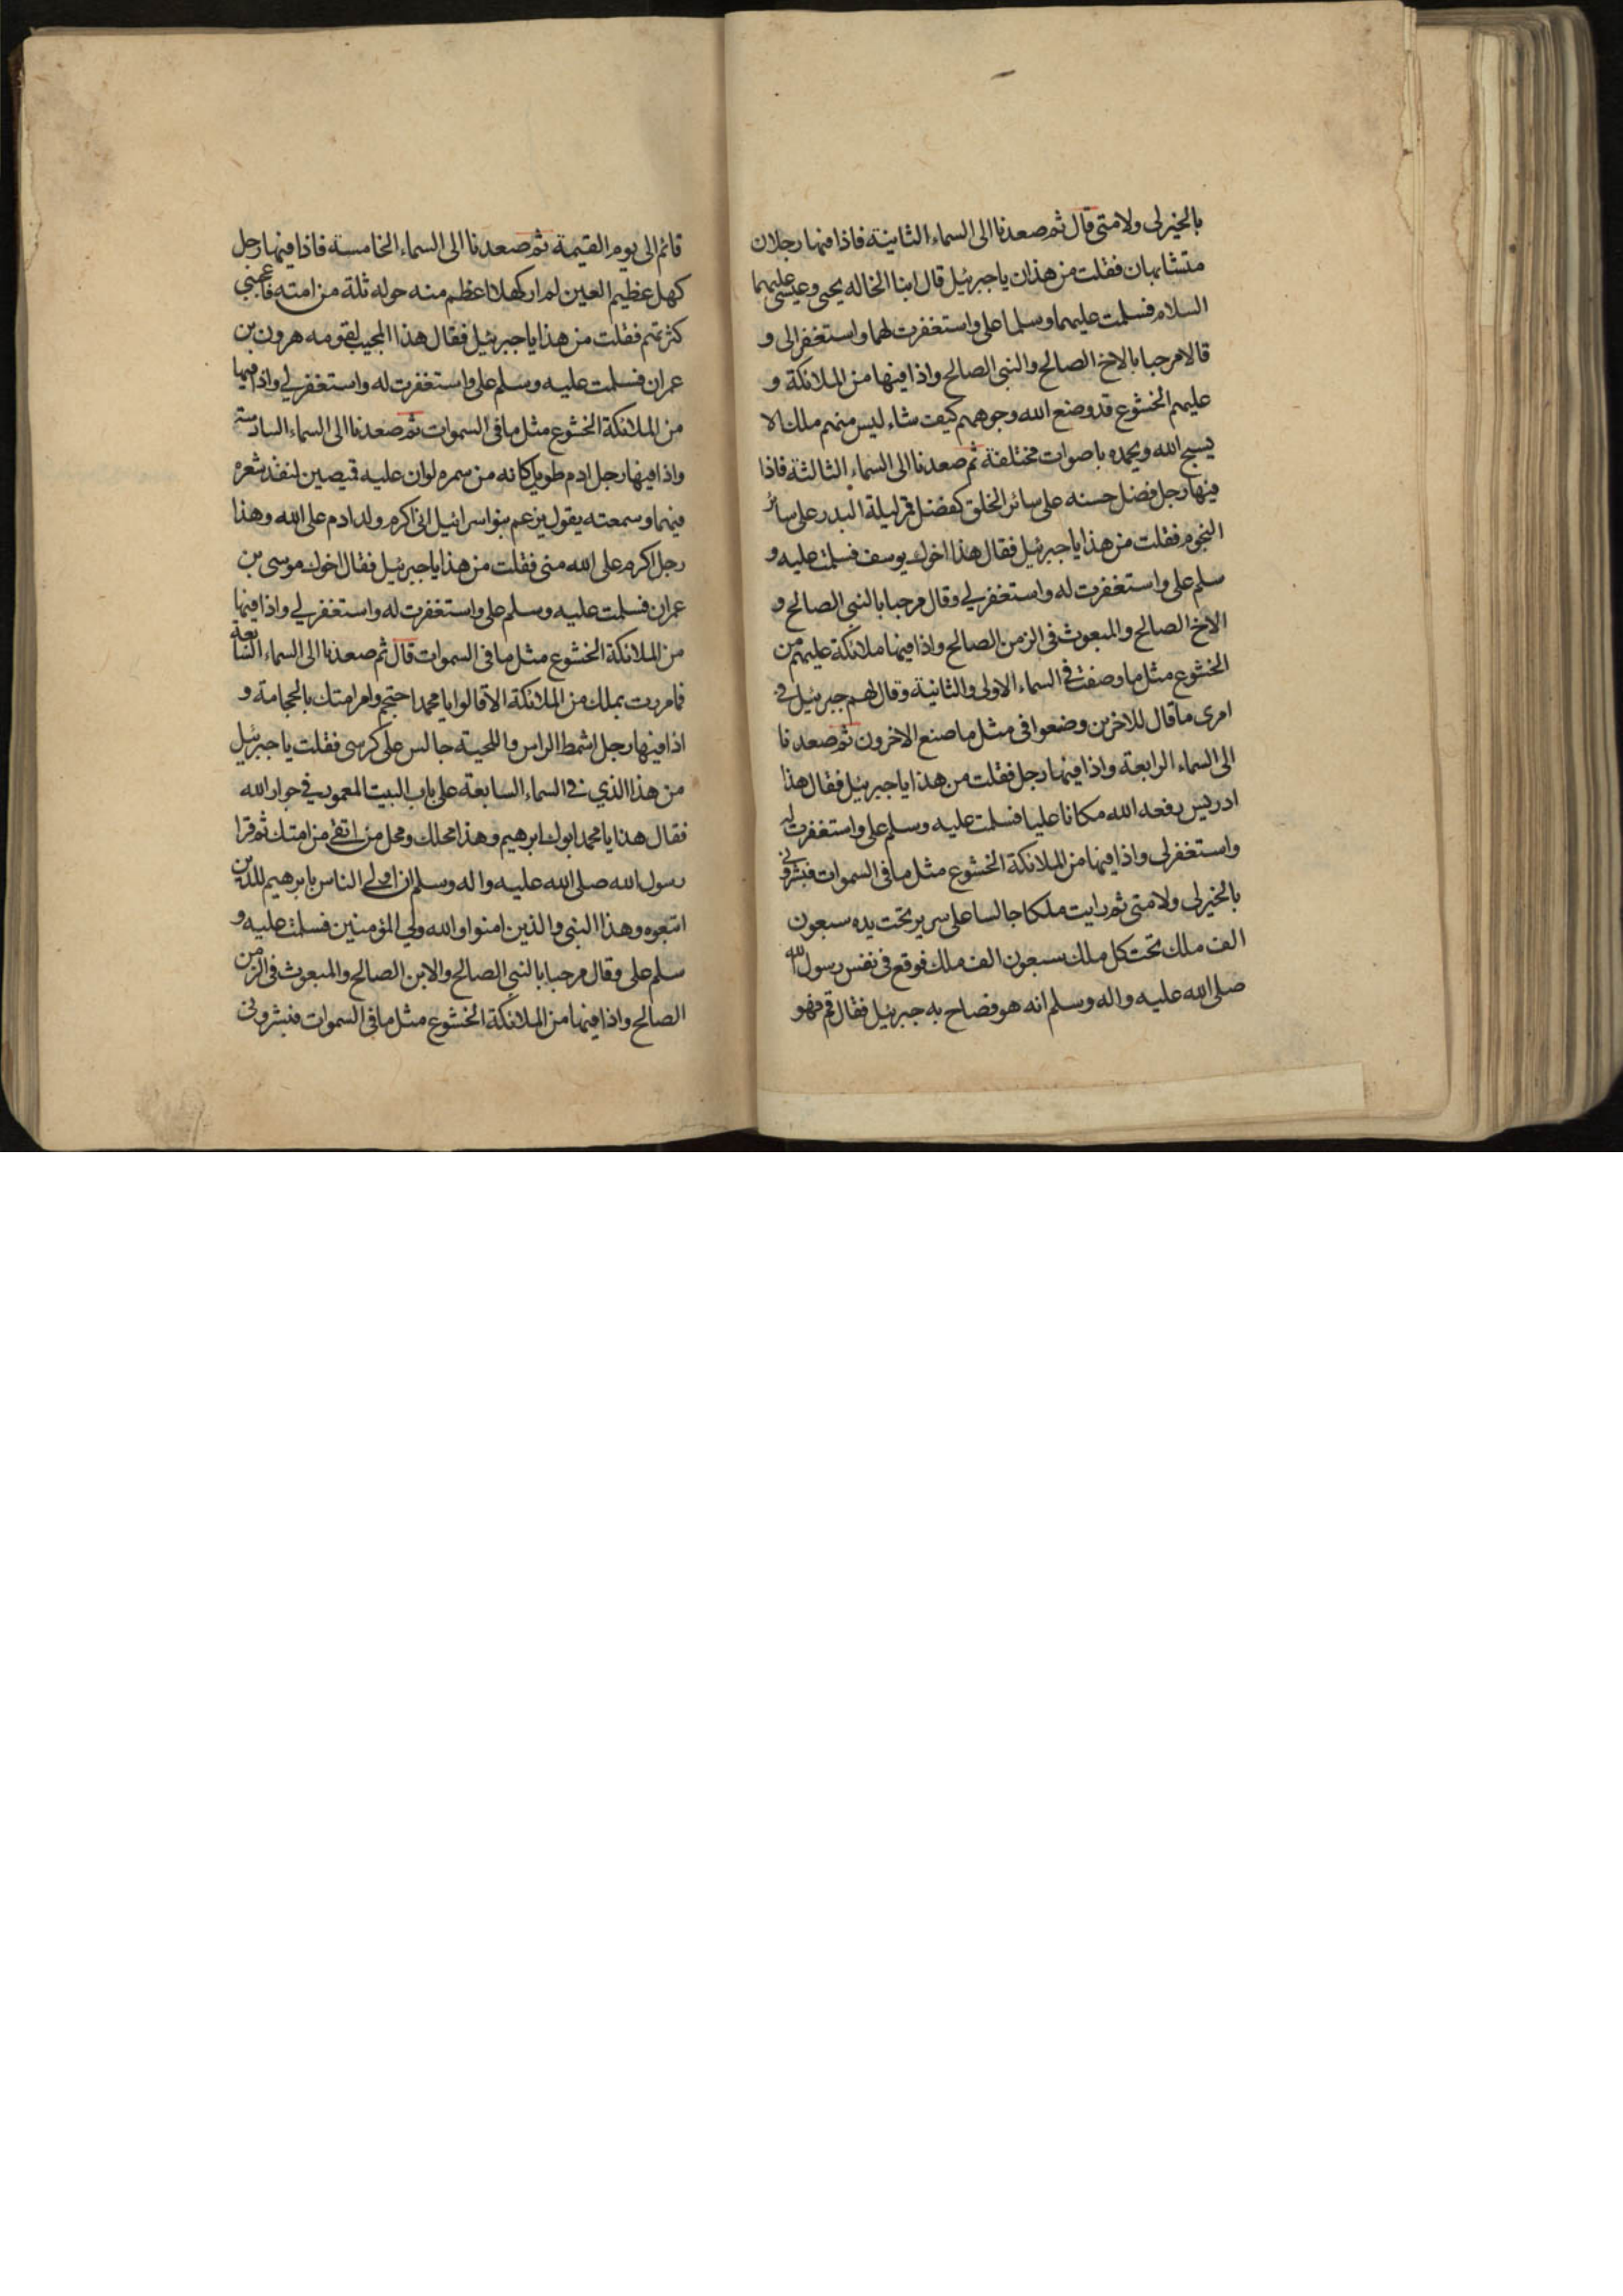 بالخير لى ولامتى قال ثم صعدنا الى السماء الثانية فاذا فيها رجلان
متشابهان فقلت من هذان يا جبرئيل قال ابنا الخاله يحيى وعيسى عليهما
السلام فسلمت عليهما وسلما على واستغفرت لهما واستغفرا لى و
قالا مرحبا بالاخ الصالح والنبى الصالح واذا فيها من الملائكة و
عليهم الخشوع قد وضع الله وجوههم كيف شاء ليس منهم ملك الا
يسبح الله ويحمده باصوات مختلفة ثم صعدنا الى السماء الثالثة فاذا
فيها رجل فضل حسنه على سائر الخلق كفضل قمر ليلة البدر على سائر
النجوم فقلت من هذا يا جبرئيل فقال هذا اخوك يوسف فسلمت عليه و
سلم على واستغفرت له واستغفر لي وقال مرحبا بالنبى الصالح و
الاخ الصالح والمبعوث فى الزمن الصالح واذا فيها ملائكة عليهم من
الخشوع مثل ما وصفت في السماء الاولى والثانية وقال لهم جبرئيل في
امرى ما قال للاخرين وضعوا فى مثل ما صنع الاخرون ثم صعدنا
الى السماء الرابعة واذا فيها رجل فقلت من هذا يا جبرئيل فقال هذا
ادريس رفعه الله مكانا عليا فسلمت عليه وسلم على واستغفرت له
واستغفر لى واذا فيها من الملائكة الخشوع مثل ما فى السموات فبشرونى
بالخير لى ولامتى ثم رايت ملكا جالسا على سرير تحت يده سبعون
الف ملك تحت كل ملك سبعون الف ملك فوقع فى نفس رسول الله
صلى الله عليه واله وسلم انه هو فصاح به جبرئيل فقال قم فهو
قائم الى يوم القيمة ثم صعدنا الى السماء الخامسة فاذا فيها رجل
كهل عظيم العين لم ار كهلا اعظم منه حوله ثلة من امته فاعجبنى
كثرتهم فقلت من هذا يا جبرئيل فقال هذا المجيب لقومه هرون بن
عمران فسلمت عليه وسلم على واستغفرت له واستغفر لي واذا فيها
من الملائكة الخشوع مثل ما فى السموات ثم صعدنا الى السماء السادسة
واذا فيها رجل ادم طويل كانه من سمره لو ان عليه قميصين لنفذ شعره
فيهما وسمعته يقول يزعم بنو اسرائيل انى اكرم ولد ادم على الله وهذا
رجل اكرم على الله منى فقلت من هذا يا جبرئيل فقال اخوك موسى بن
عمران فسلمت عليه وسلم على واستغفرت له واستغفر لي واذا فيها
من الملائكة الخشوع مثل ما فى السموات قال ثم صعدنا الى السماء السابعة
فما مررت بملك من الملائكة الا قالوا يا محمد احتجم وامر امتك بالحجامة و
اذا فيها رجل اشمط الراس واللحية جالس على كرسى فقلت يا جبرئيل
من هذا الذي في السماء السابعة على باب البيت المعمور في جوار الله
فقال هذا يا محمد ابوك ابرهيم وهذا محلك ومحل من اتقى من امتك ثم قرا
رسول الله صلى الله عليه واله وسلم ان اولى الناس بابرهيم للذين
اتبعوه وهذا النبى والذين امنوا والله ولي المؤمنين فسلمت عليه و
سلم على وقال مرحبا بالنبي الصالح والابن الصالح والمبعوث فى الزمن
الصالح واذا فيها من الملائكة الخشوع مثل ما فى السموات فبشرونى